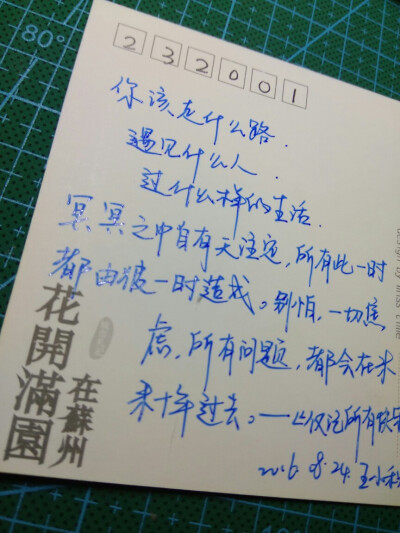 80°
232001
你该走什么路.
遇见什么人.
过什么样的生活.
冥冥之中自有天注定,所有此一时
都由彼一时造成。别怕,一切焦
虑,所有问题,都会在未
来十年过去。——以仅记所有快乐
2016.08.24.王小
花開滿園
在蘇州
design by Miss